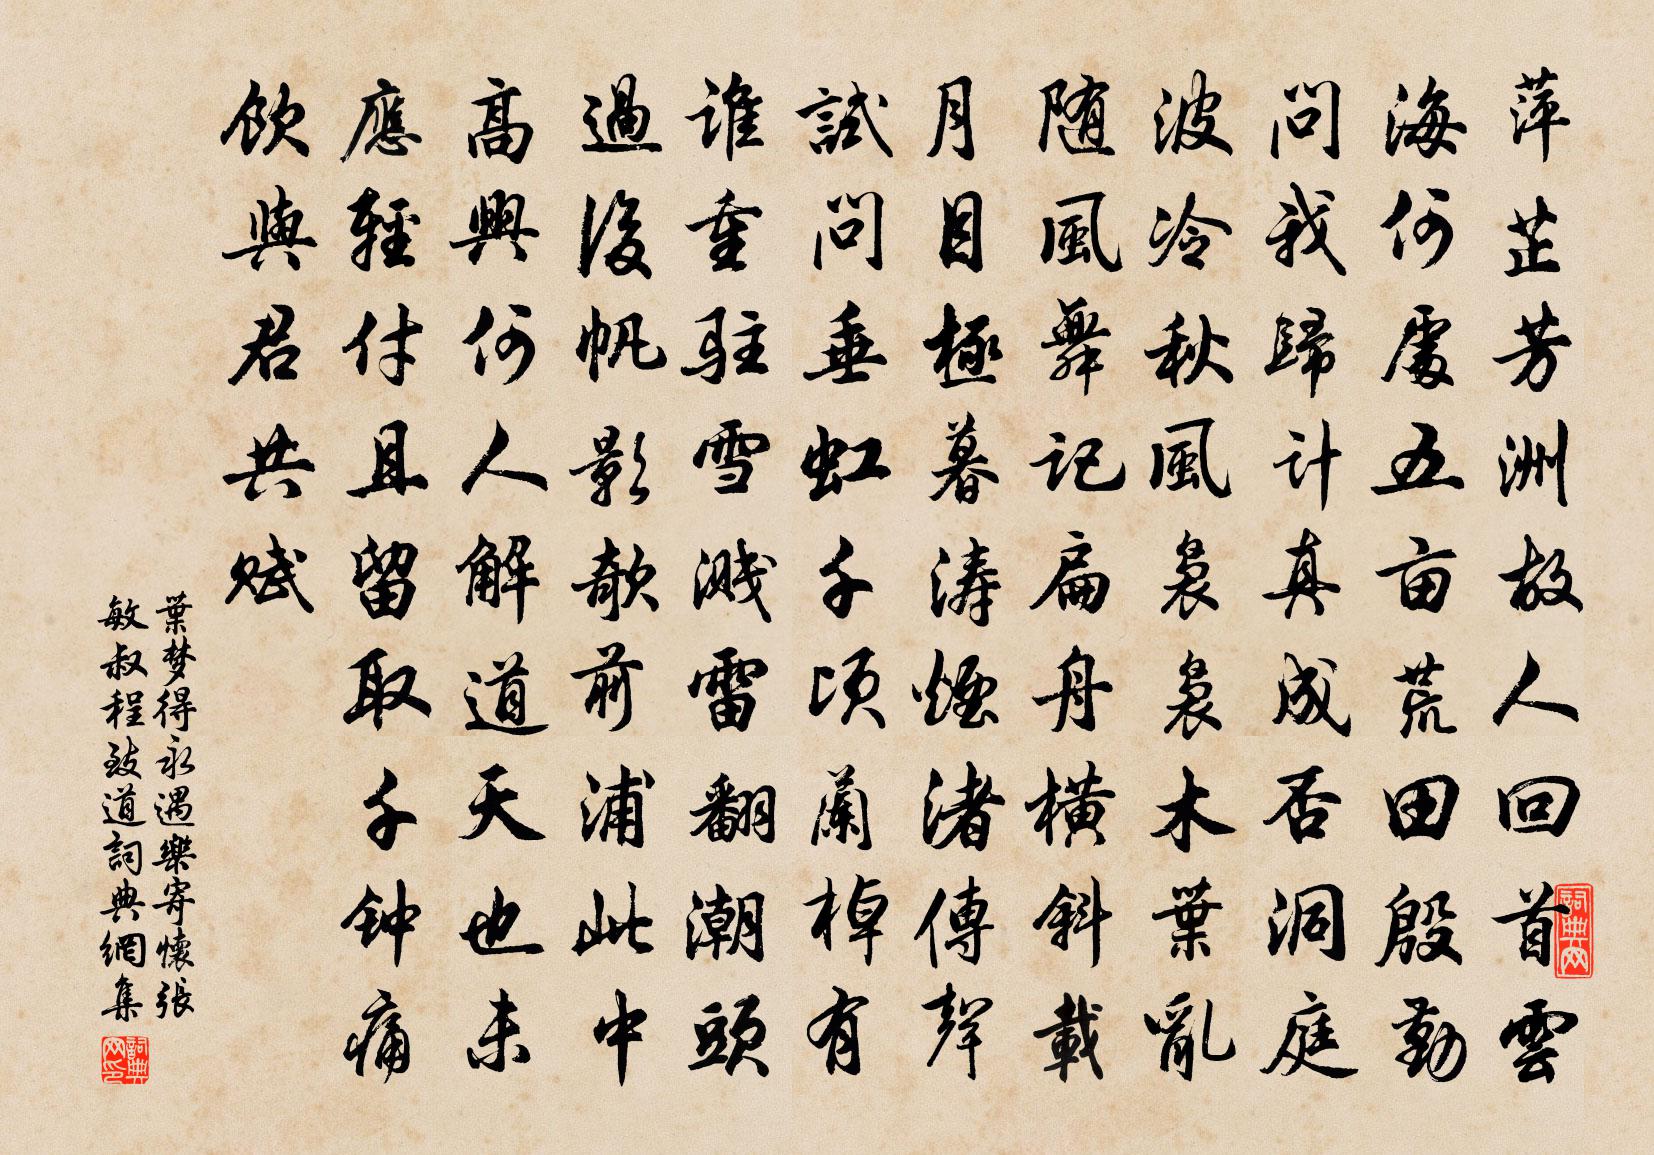 萍芷芳洲故人回首雲
海何處五亩荒田殷勤
問我歸計真成否洞庭
波冷秋風袅袅木葉亂
随風舞記扁舟横斜載
月目極暮濤煙渚傳聲
試問垂虹千頃蘭棹有
谁重駐雪濺雷翻潮頭
過後帆影欹前浦此中
高興何人解道天也未
應輕付且留取千钟痛
飲與君共賦
葉梦得永遇樂寄懷張
敏叔程致道詞典網集
詞典网
詞典网印